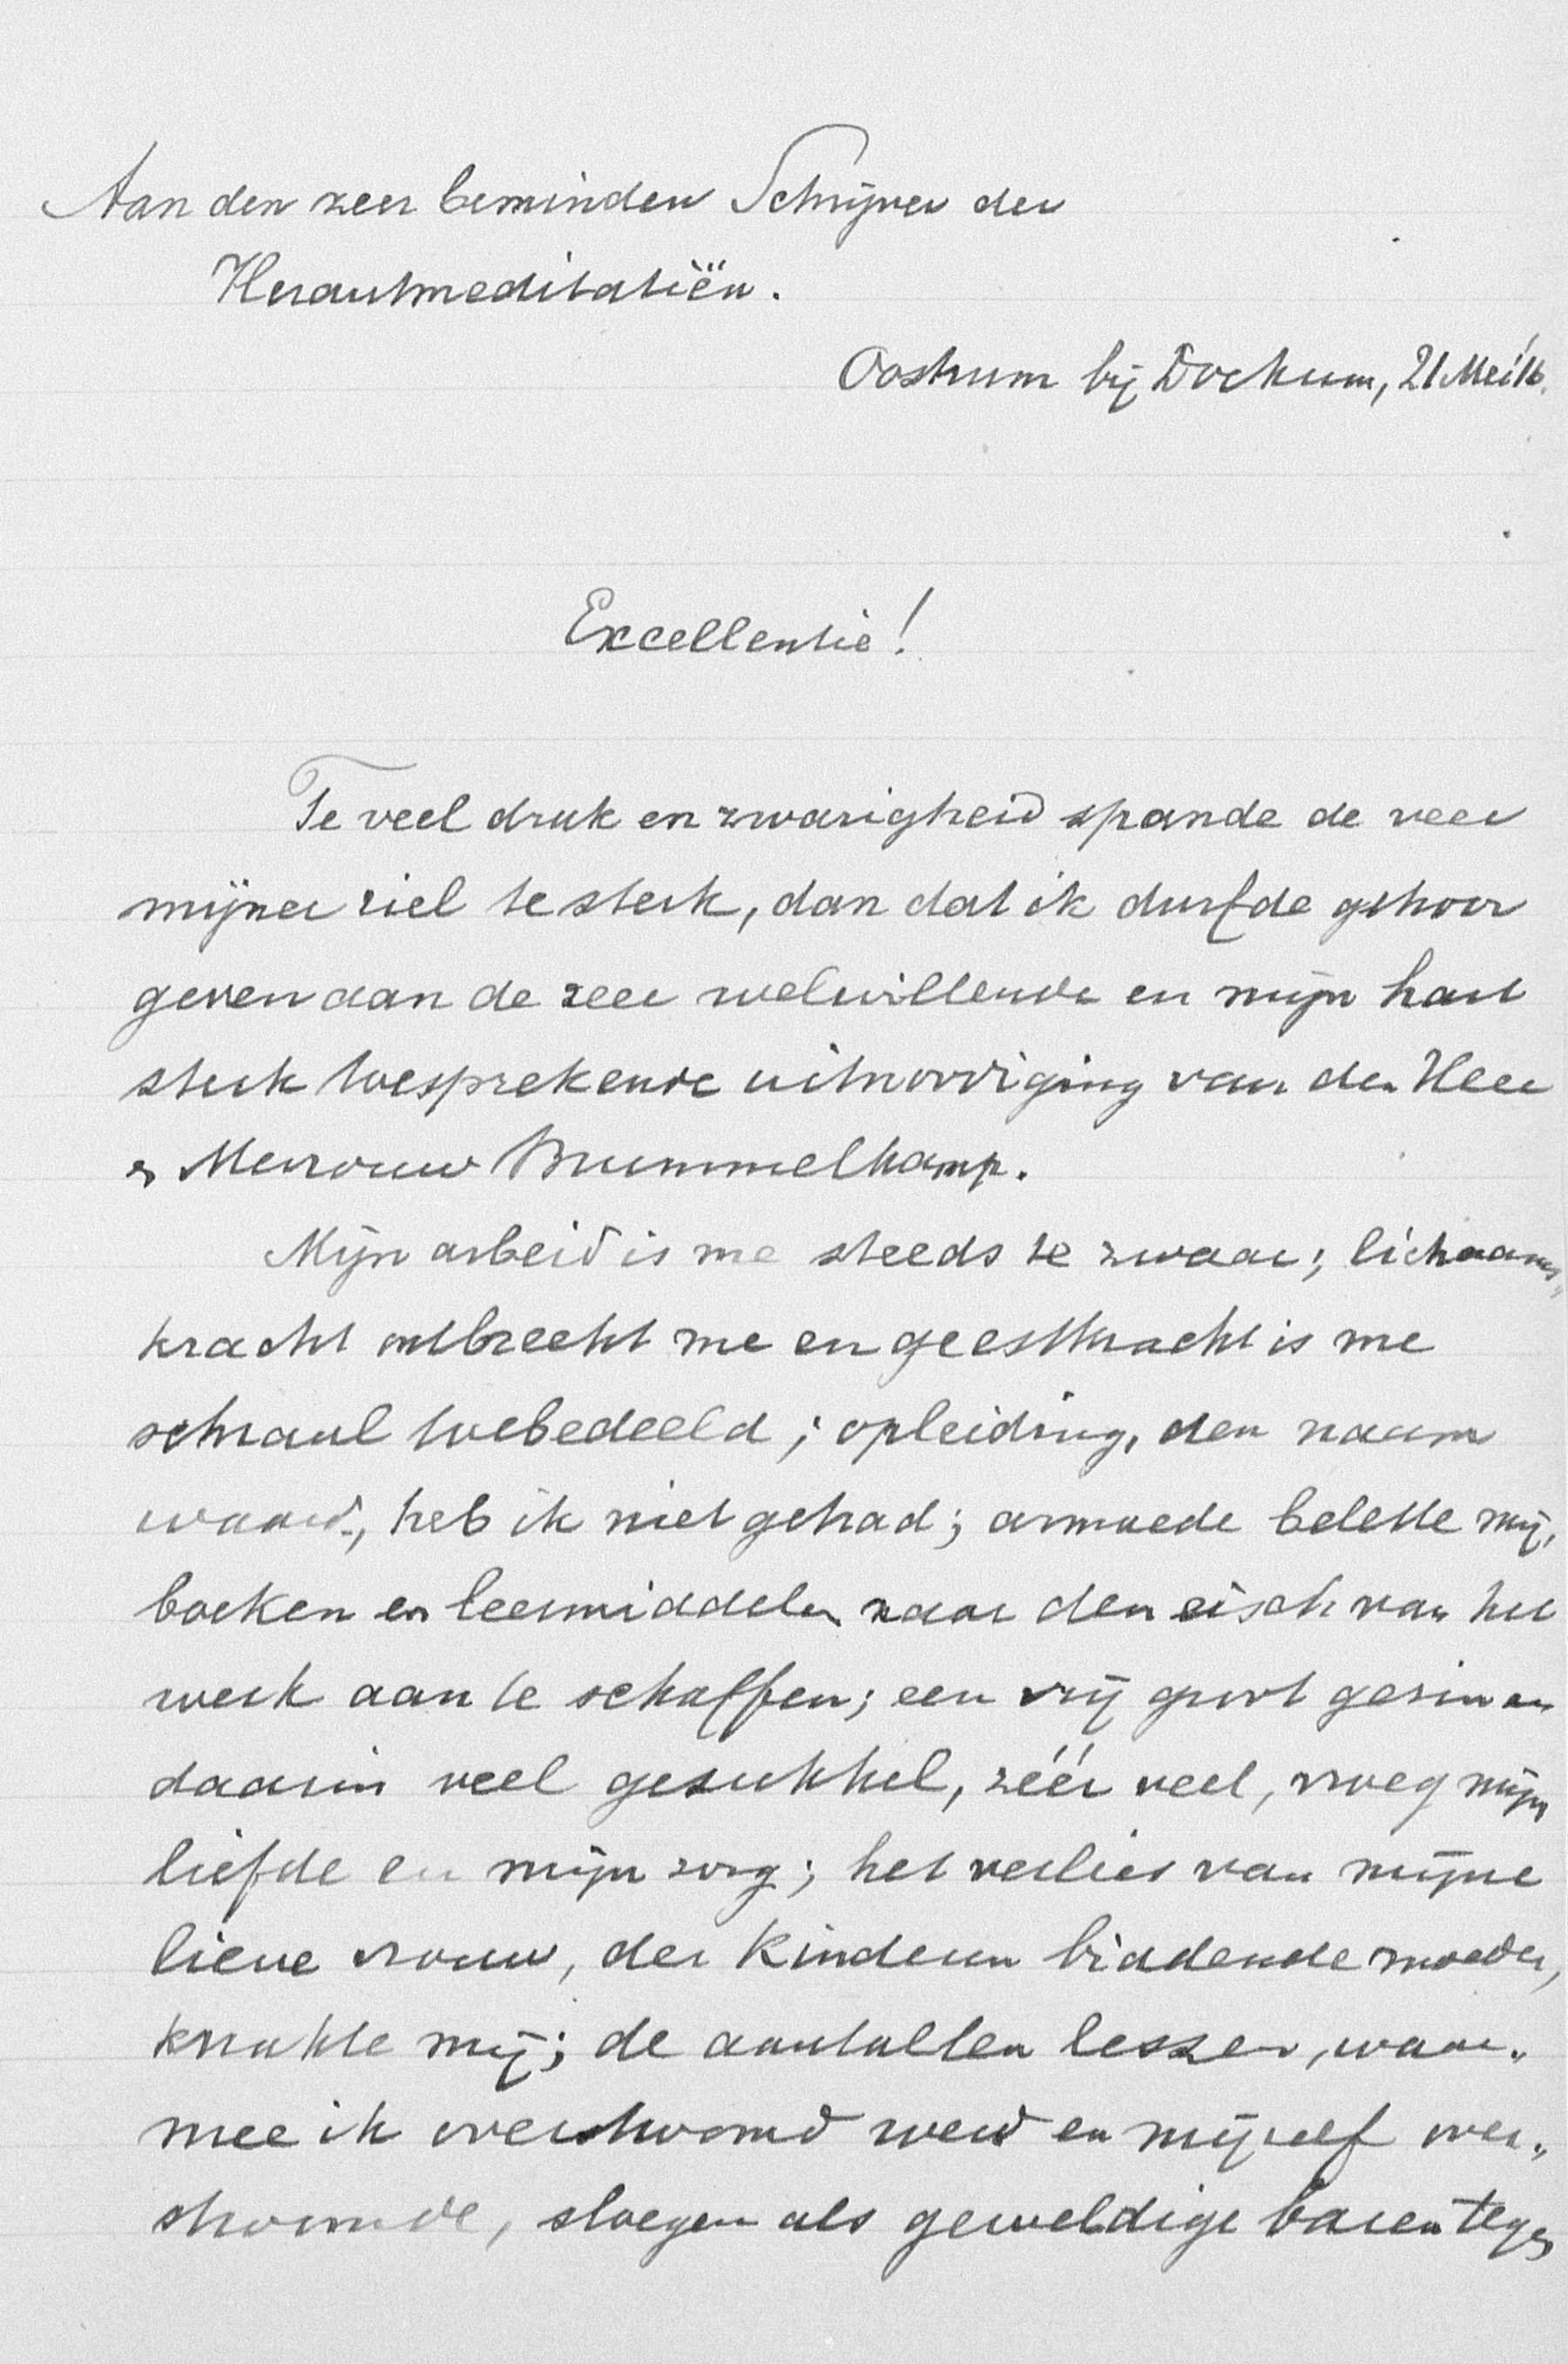 Aan den zeer beminden Schrijver der
Herautmeditatiën.
Oostrum bij Dockum, 21 Mei '16.
Excellentie!
Te veel druk en zwarigheid spande de veer
mijner ziel te sterk, dan dat ik durfde gehoor
geven aan de zeer welwillende en mijn hart
sterk toesprekende uitnoodiging van den Heer
en Mevrouw Brummelkamp.
Mijn arbeid is me steeds te zwaar; lichaams„
kracht ontbreekt me en geestkracht is me
schraal toebedeeld; opleiding, den naam
waard, heb ik niet gehad; armoede belette mij,
boeken en leermiddelen naar den eisch van het
werk aan te schaffen; een vrij groot gezin en
daarin veel gesukkel, zéér veel, vroeg mijn
liefde en mijn zorg; het verlies van mijne
lieve vrouw, der kinderen biddende moeder,
knakte mij; de aantallen lessen, waar„
mee ik overstroomd werd en mijzelf over„
stroomde, sloegen als geweldige baren tegen